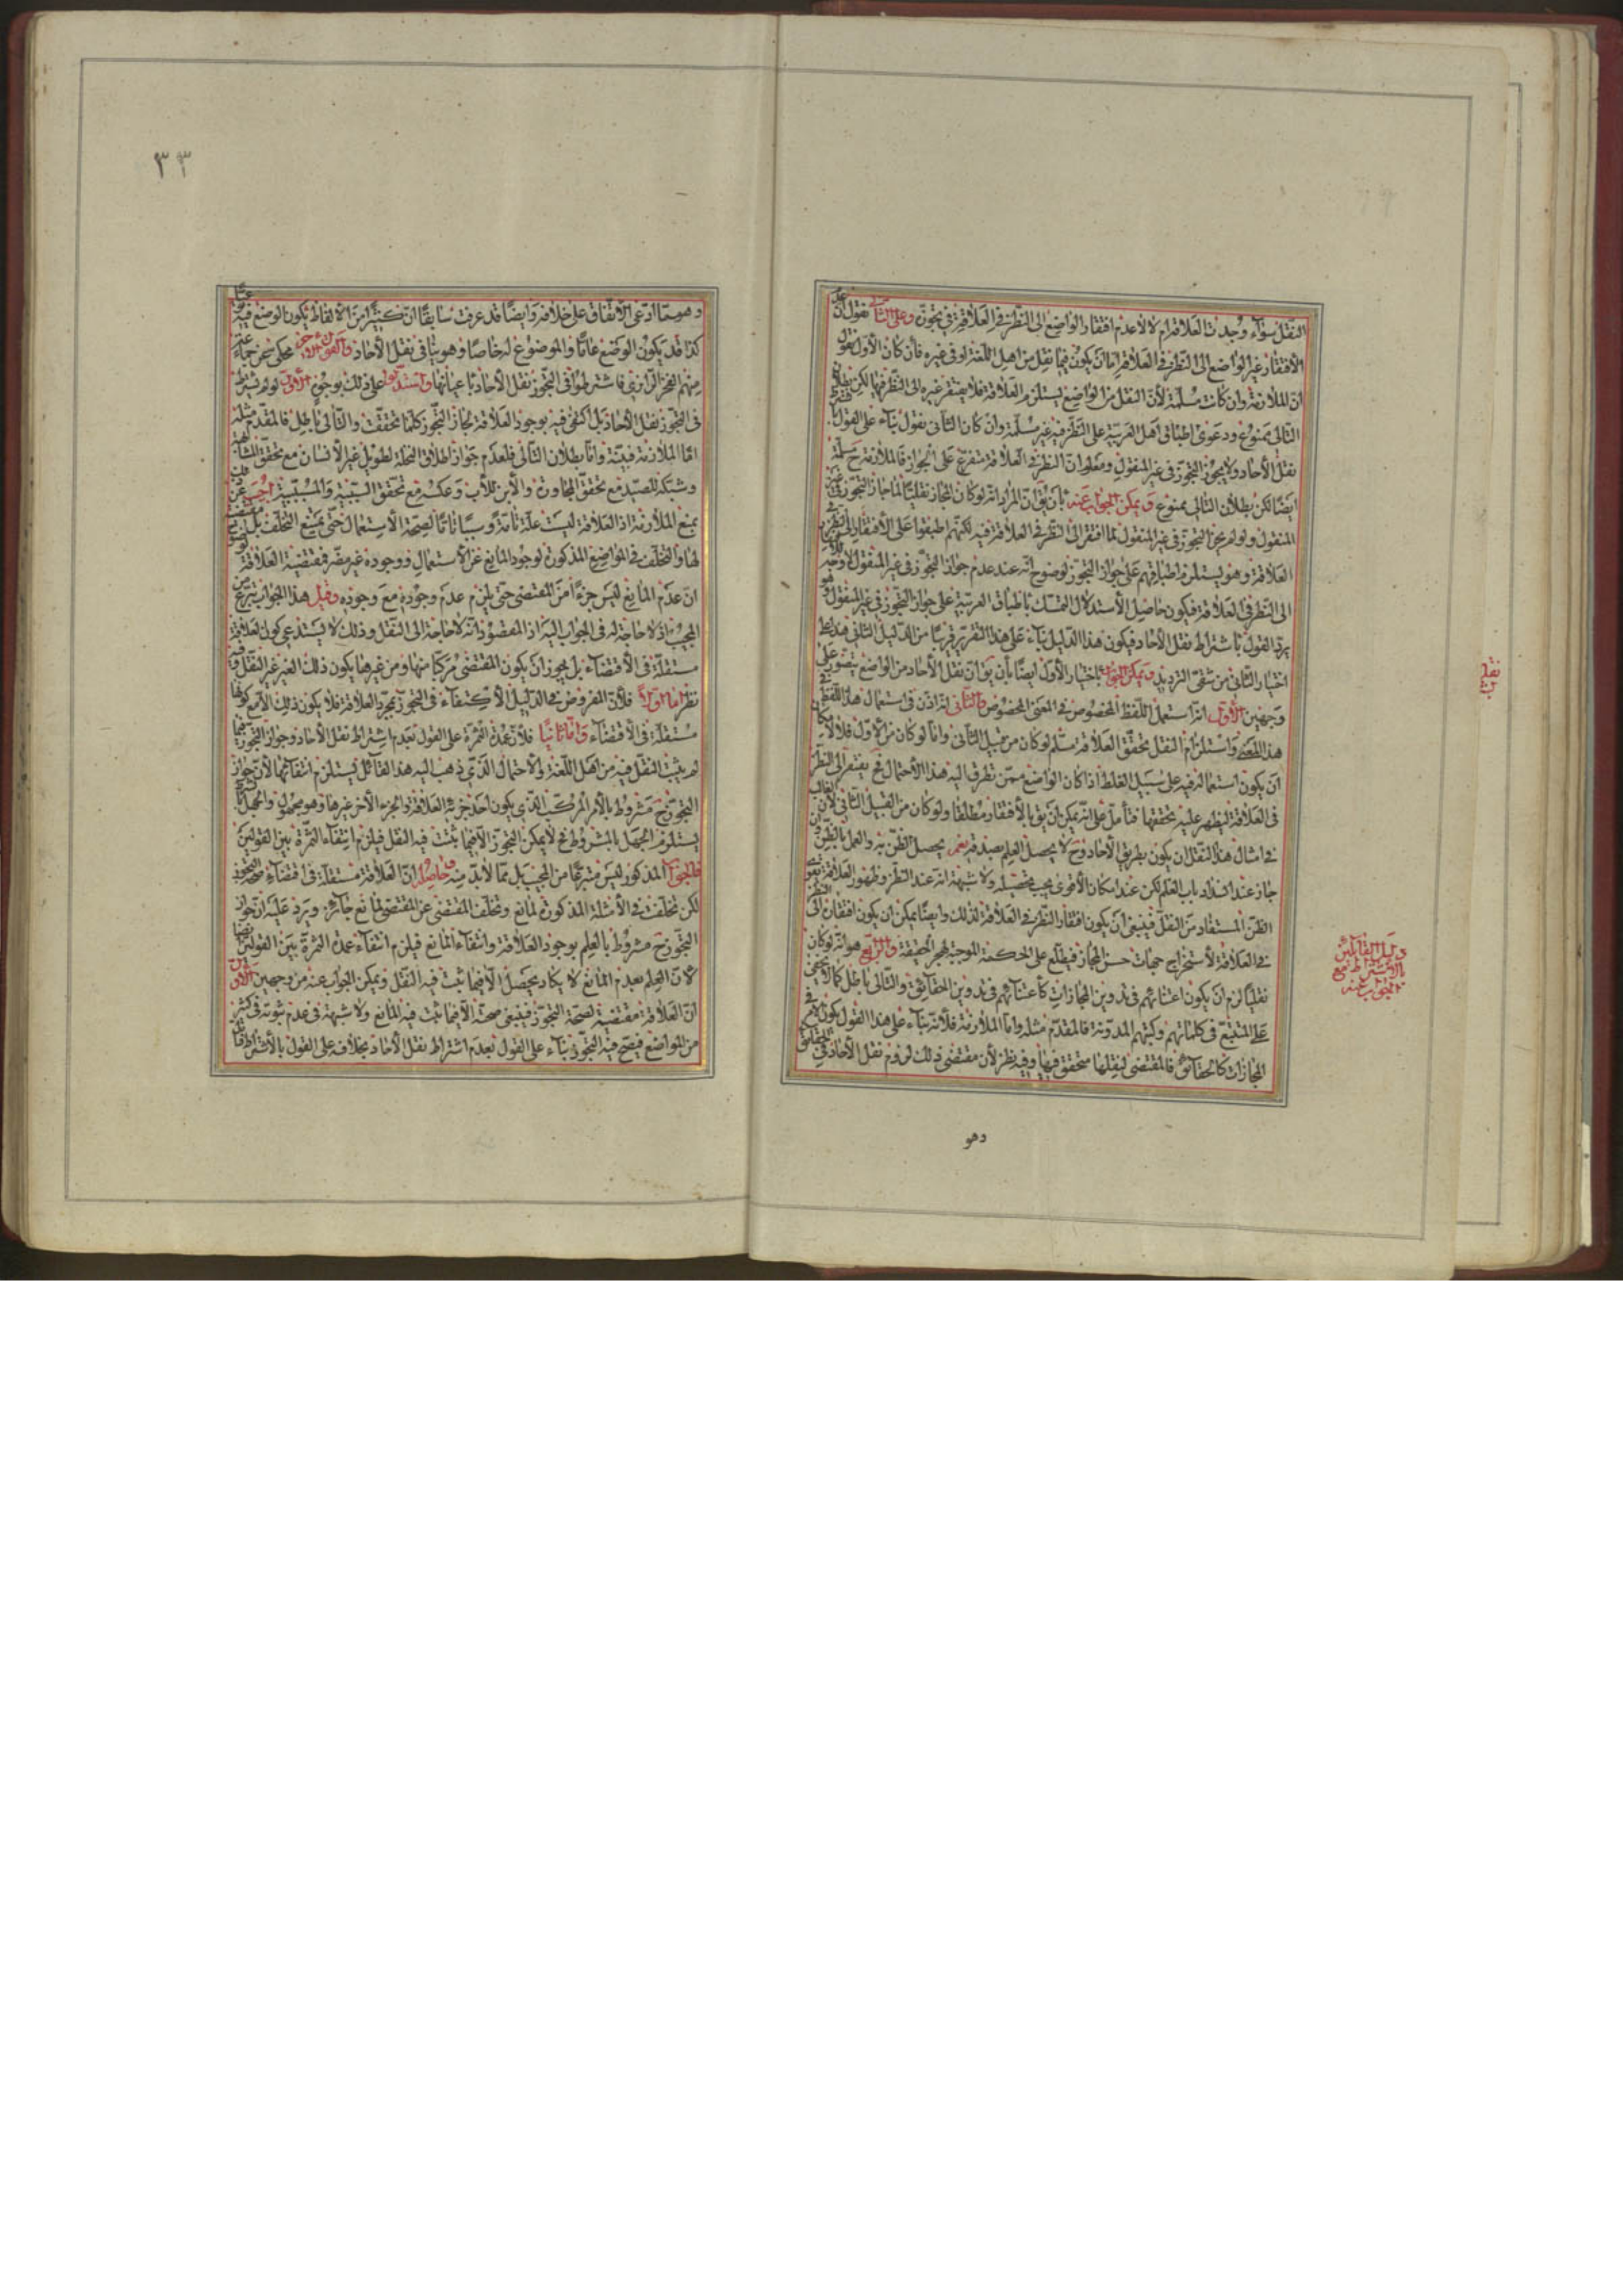 النقل سواء وجدت العلاقة ام لا لاعدم افتقار الواضع الى النظر في العلاقة في تجوزه وعلى الثاني نقول ان
الافتقار غير الواضع الى النظر في العلاقة اما ان يكون فيما نقل من اهل اللغة او في غيره فان كان الاول نقول
ان الملازمة وان كانت مسلمة لأن النقل من الواضع يستلزم العلاقة فلا يفتقر غيره الى النظر فيها لكن بطلان
التالى ممنوع ودعوى اطباق اهل العربية على النظر فيه غير مسلمة وان كان الثانى نقول بناء على القول
نقل الآحاد ولا يجوز التجوز فى غير المنقول ومعلوم ان النظر في العلاقة متفرع على الجواز فالملازمة ح مسلمة
ايضا لكن بطلان التالى ممنوع ويمكن الجواب عنه بأن يق ان المراد انه لو كان المجاز نقليا لما جاز التجوز فى غير
المنقول ولو لم يجز التجوز فى غير المنقول لما افتقر الى النظر في العلاقة فيه لكنهم اطبقوا على الافتقار الى النظر في
العلاقة وهو يستلزم اطباقهم على جواز التجوز لوضوح انه عند عدم جواز التجوز فى غير المنقول لا وجه
الى النظر في العلاقة فيكون حاصل الاستدلال التمسك باطباق العربية على جواز التجوز فى غير المنقول وهو
يرد القول باشتراط نقل الآحاد فيكون هذا الدليل بناء على هذا التقرير قريبا من الدليل الثانى هذا على
اختيار الثانى من شقى الترديد ويمكن الجواب باختيار الأول ايضا بأن يق ان نقل الآحاد من الواضع يتصور على
وجهين الأول انه استعمل اللفظ المخصوص في المعنى المخصوص والثاني انه اذن فى استعمال هذا اللفظ في
هذا المعنى واستلزام النقل تحقق العلاقة مسلم لو كان من قبيل الثانى واما لو كان من الأول فلا لامكان
ان يكون استعماله فيه على سبيل الغلط اذا كان الواضع ممن تطرق اليه هذا الاحتمال فح يفتقر الى النظر
فى العلاقة ليظهر عليه تحققها فتأمل على انه يمكن ان يق بالافتقار مطلقا ولو كان من القبيل الثانى لأن الغالب
في امثال هذا النقل ان يكون بطريق الآحاد وح لا يحصل العلم بصدقه نعم يحصل الظن به والعمل بالظن وان
جاز عند انسداد باب العلم لكن عند امكان الاقوى يجب تحصيله ولا شبهة انه عند النظر وظهور العلاقة يقوى
الظن المستفاد من النقل فينبغى ان يكون افتقار النظر في العلاقة لذلك وايضا يمكن ان يكون افتقاره الى النظر
في العلاقة لاستخراج جهات حسن المجاز فيطلع على الحكمة الموجبة لهجر الحقيقة والرابع هو انه لو كان
نقليا لزم ان يكون اعتنائهم فى تدوين المجازات كاعتنائهم فى تدوين الحقايق والتالى باطل كما لا يخفى
على المتتبع فى كلماتهم وكتبهم المدونة فالمقدم مثله واما الملازمة فلأنه بناء على هذا القول يكون
المجازات كالحقايق فالمقتضى لنقلها متحقق فيها وفيه نظر لأن مقتضى ذلك لزوم نقل الآحاد في الحقايق
وهو
نقلى
دليل القايلين
بالاشتراط مع
الجواب عنه
٣٣
وهو مما ادعى الاتفاق على خلافه وايضا قد عرفت سابقا ان كثيرا من الالفاظ يكون الوضع فيه
كذا قد يكون الوضع عاما والموضوع له خاصا وهو ينافى نقل الآحاد والقول الآخر محكى عن جماعة
منهم الفخر الرازي فاشترطوا فى التجوز نقل الآحاد باعيانها واستدلوا على ذلك بوجوه الأول لو لم يشترط
فى التجوز نقل الآحاد بل اكتفى فيه بوجود العلاقة لجاز التجوز كلما تحققت والتالى باطل فالمقدم مثله
اما الملازمة فبينة واما بطلان التالى فلعدم جواز اطلاق النخلة لطويل غير الانسان مع تحقق المشابهة
وشبكة للصيد مع تحقق المجاورة والابن للأب وعكسه مع تحقق السببية والمسببية اجيب عن
بمنع الملازمة اذ العلاقة ليست علة تامة وسببا تاما لصحة الاستعمال حتى يمتنع التخلف بل
لها والتخلف في المواضع المذكورة لوجود المانع عن الاستعمال ووجوده غير مضر فى مقتضية العلاقة
ان عدم المانع ليس جزءا من المقتضى حتى يلزم عدم وجوده مع وجوده وقيل هذا الجواب تبرع من
المجيب اذ لا حاجة له فى الجواب اليه اذ المقصود انه لا حاجة الى النقل وذلك لا يستدعى كون العلاقة
مستقلة فى الاقتضاء بل يجوز ان يكون المقتضى مركبا منها ومن غيرها يكون ذلك الغير غير النقل وفيه
نظر اما اولا فلأن المفروض في الدليل الاكتفاء فى التجوز بمجرد العلاقة فلا يكون ذلك الا مع كونها
مستقلة فى الاقتضاء واما ثانيا فلأن عمدة الثمرة على القول بعدم اشتراط نقل الآحاد وجواز التجوز فيما
لم يثبت النقل فيه من اهل اللغة والاحتمال الذى ذهب اليه هذا القائل يستلزم انتفائها لأن جواز
التجوز ح مشروط بالأمر المركب الذى يكون احد جزئيه العلاقة والجزء الآخر غيرها وهو مجهول والجهل
يستلزم الجهل بالمشروط فح لا يمكن التجوز الا فيما ثبت فيه النقل فيلزم انتفاء الثمرة بين القولين
فالجواب المذكور ليس متبرعا من المجيب بل مما لا بد منه وحاصله ان العلاقة مستقلة فى اقتضاء صحة التجوز
لكن تخلفت في الأمثلة المذكورة لمانع وتخلف المقتضى عن المقتضى لمانع جائز ويرد عليه ان جواز
التجوز ح مشروط بالعلم بوجود العلاقة وانتفاء المانع فيلزم انتفاء عمدة الثمرة بين القولين ايضا
لأن العلم بعدم المانع لا يكاد يحصل الا فيما ثبت فيه النقل ويمكن الجواب عنه من وجهين الأول
ان العلاقة مقتضية لصحة التجوز فينبغى صحته الا فيما ثبت فيه المانع ولا شبهة فى عدم ثبوته فى كثير
من المواضع فيصح فيه التجوز بناء على القول بعدم اشتراط نقل الآحاد بخلافه على القول بالاشتراط